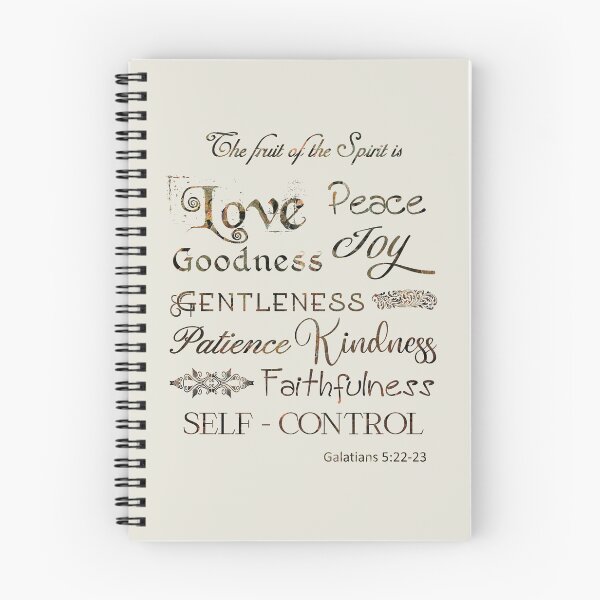 The fruit of the Spirit is
Love Peace
Goodness Joy
GENTLENESS
Patience Kindness
Faithfulness
SELF - CONTROL
Galatians 5:22-23